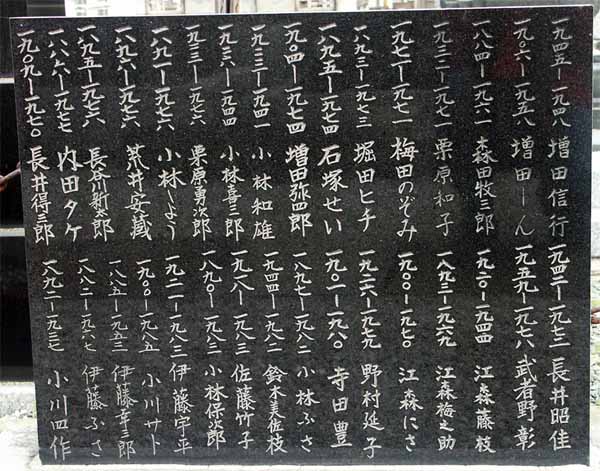 一九四五―一九四八 増田信行
一九〇六―一九五八 増田しん
一八八四―一九六一 森田牧三郎
一九三二―一九七一 栗原和子
一九七一―一九七一 梅田のぞみ
一八九三―一九七三 堀田ヒチ
一八九五―一九七四 石塚せい
一九〇四―一九七四 増田弥四郎
一九三三―一九四一 小林和雄
一九三六―一九四四 小林喜三郎
一九三一―一九七六 栗原勇次郎
一八九一―一九七六 小林しよう
一八九六―一九七六 荒井安蔵
一八九五―一九七六 長谷川新太郎
一八八六―一九七七 内田タケ
一九〇九―一九七〇 長井得三郎
一九四二―一九七三 長井昭佳
一九五九―一九七八 武者野彰
一九二〇―一九四四 江森藤枝
一八九三―一九六九 江森梅之助
一九〇〇―一九七〇 江森にさ
一九二六―一九七九 野村延子
一九〇一―一九八〇 寺田豊
一八九七―一九八二 小林ふさ
一九四四―一九八二 鈴木美佐枝
一九一八―一九八三 佐藤竹子
一八九〇―一九八三 小林保次郎
一九二一―一九八三 伊藤宇平
一九〇〇―一九八五 小川サト
一八八五―一九五三 伊藤幸三郎
一八八二―一九六七 伊藤ふさ
一八九二―一九三七 小川四作